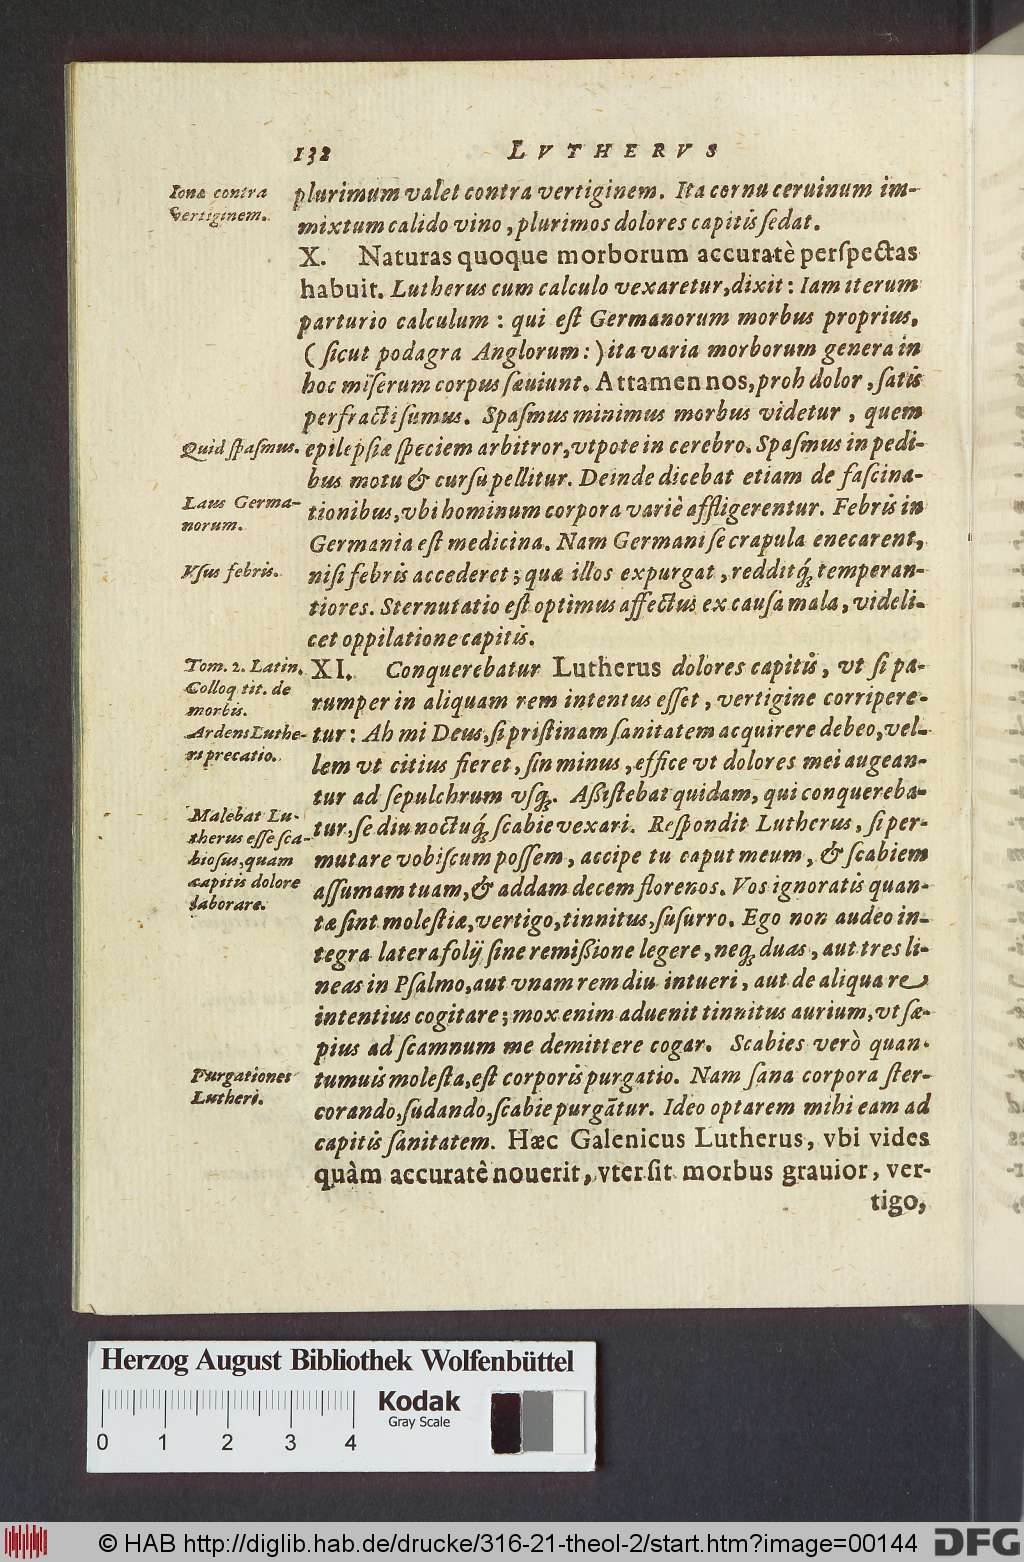 132 LVTHERVS
Ionæ contra
vertiginem.
plurimum valet contra vertiginem. Ita cornu ceruinum im-
mixtum calido vino, plurimos dolores capitis ſedat.
X. Naturas quoque morborum accuratè perſpectas
habuit. Lutherus cum calculo vexaretur, dixit: Iam iterum
parturio calculum: qui eſt Germanorum morbus proprius,
(ſicut podagra Anglorum:) ita varia morborum genera in
hoc miſerum corpus ſæuiunt. Attamen nos, proh dolor, ſatis
perfracti ſumus. Spaſmus minimus morbus videtur, quem
Quid ſpaſmus.
epilepſiæ ſpeciem arbitror, vtpote in cerebro. Spaſmus in pedi-
bus motu & curſu pellitur. Deinde dicebat etiam de faſcina-
Laus Germa-
norum.
tionibus, vbi hominum corpora variè affligerentur. Febris in
Germania eſt medicina. Nam Germani ſe crapula enecarent,
Vſus febris.
niſi febris accederet; quæ illos expurgat, redditq́; temperan-
tiores. Sternutatio eſt optimus affectus ex cauſa mala, videli-
cet oppilatione capitis.
Tom. 2. Latin.
Colloq tit. de
morbis.
XI. Conquerebatur Lutherus dolores capitis, vt ſi pa-
rumper in aliquam rem intentus eſſet, vertigine corripere-
Ardens Luthe-
ri precatio.
tur: Ah mi Deus, ſi priſtinam ſanitatem acquirere debeo, vel-
lem vt citius fieret, ſin minus, effice vt dolores mei augean-
tur ad ſepulchrum vſq;. Aßiſtebat quidam, qui conquereba-
Malebat Lu-
therus eſſe ſca-
bioſus, quam
capitis dolore
laborare.
tur, ſe diu noctuq́; ſcabie vexari. Reſpondit Lutherus, ſi per-
mutare vobiſcum poſſem, accipe tu caput meum, & ſcabiem
aſſumam tuam, & addam decem florenos. Vos ignoratis quan-
tæ ſint moleſtiæ, vertigo, tinnitus, ſuſurro. Ego non audeo in-
tegra latera folij ſine remißione legere, neq; duas, aut tres li-
neas in Pſalmo, aut vnam rem diu intueri, aut de aliqua re
intentius cogitare; mox enim aduenit tinnitus aurium, vt ſæ-
pius ad ſcamnum me demittere cogar. Scabies verò quan-
Purgationes
Lutheri.
tumuis moleſta, eſt corporis purgatio. Nam ſana corpora ſter-
corando, ſudando, ſcabie purgātur. Ideo optarem mihi eam ad
capitis ſanitatem. Hæc Galenicus Lutherus, vbi vides
quàm accuratê nouerit, vter ſit morbus grauior, ver-
tigo,
Herzog August Bibliothek Wolfenbüttel
Kodak
Gray Scale
0 1 2 3 4
© HAB http://diglib.hab.de/drucke/316-21-theol-2/start.htm?image=00144
DFG